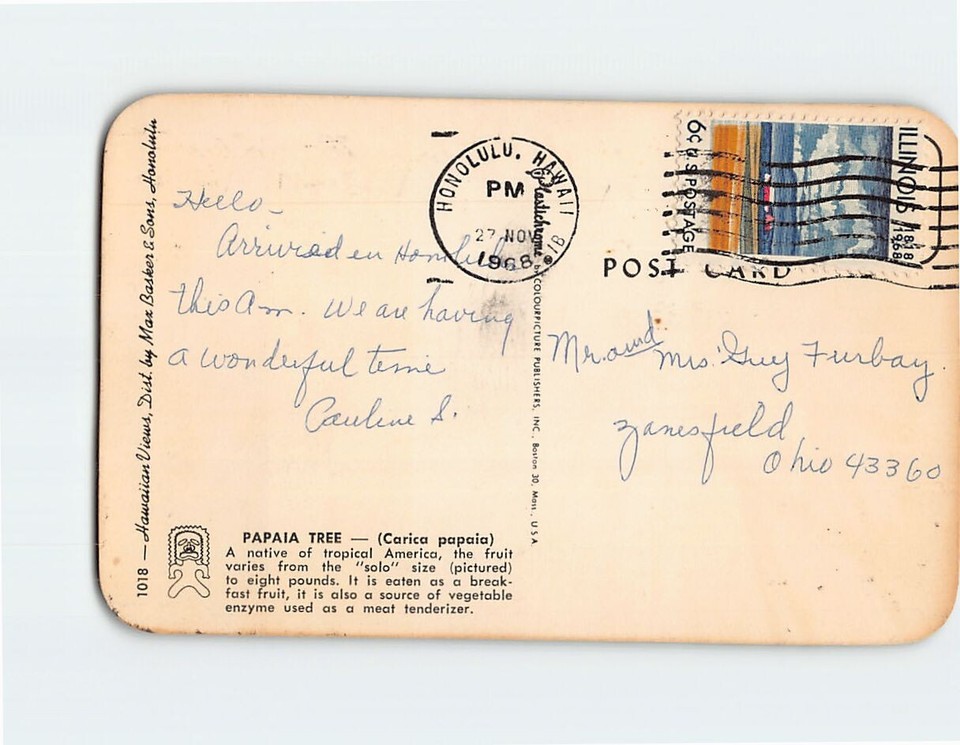 1018 — Hawaiian Views, Dist. by Max Basker & Sons, Honolulu
Hello -
Arrived in Honolulu
this Am. We are having
a wonderful time
Pauline S.
PAPAIA TREE — (Carica papaia)
A native of tropical America, the fruit
varies from the "solo" size (pictured)
to eight pounds. It is eaten as a break-
fast fruit, it is also a source of vegetable
enzyme used as a meat tenderizer.
HONOLULU, HAWAII
PM
27 NOV
1968
Plastichrome by COLOURPICTURE PUBLISHERS, INC., Boston 30, Mass., U.S.A.
6c U.S. POSTAGE
ILLINOIS 1818
1968
POST CARD
Mr. and Mrs. Guy Furbay.
Zanesfield
Ohio 43360